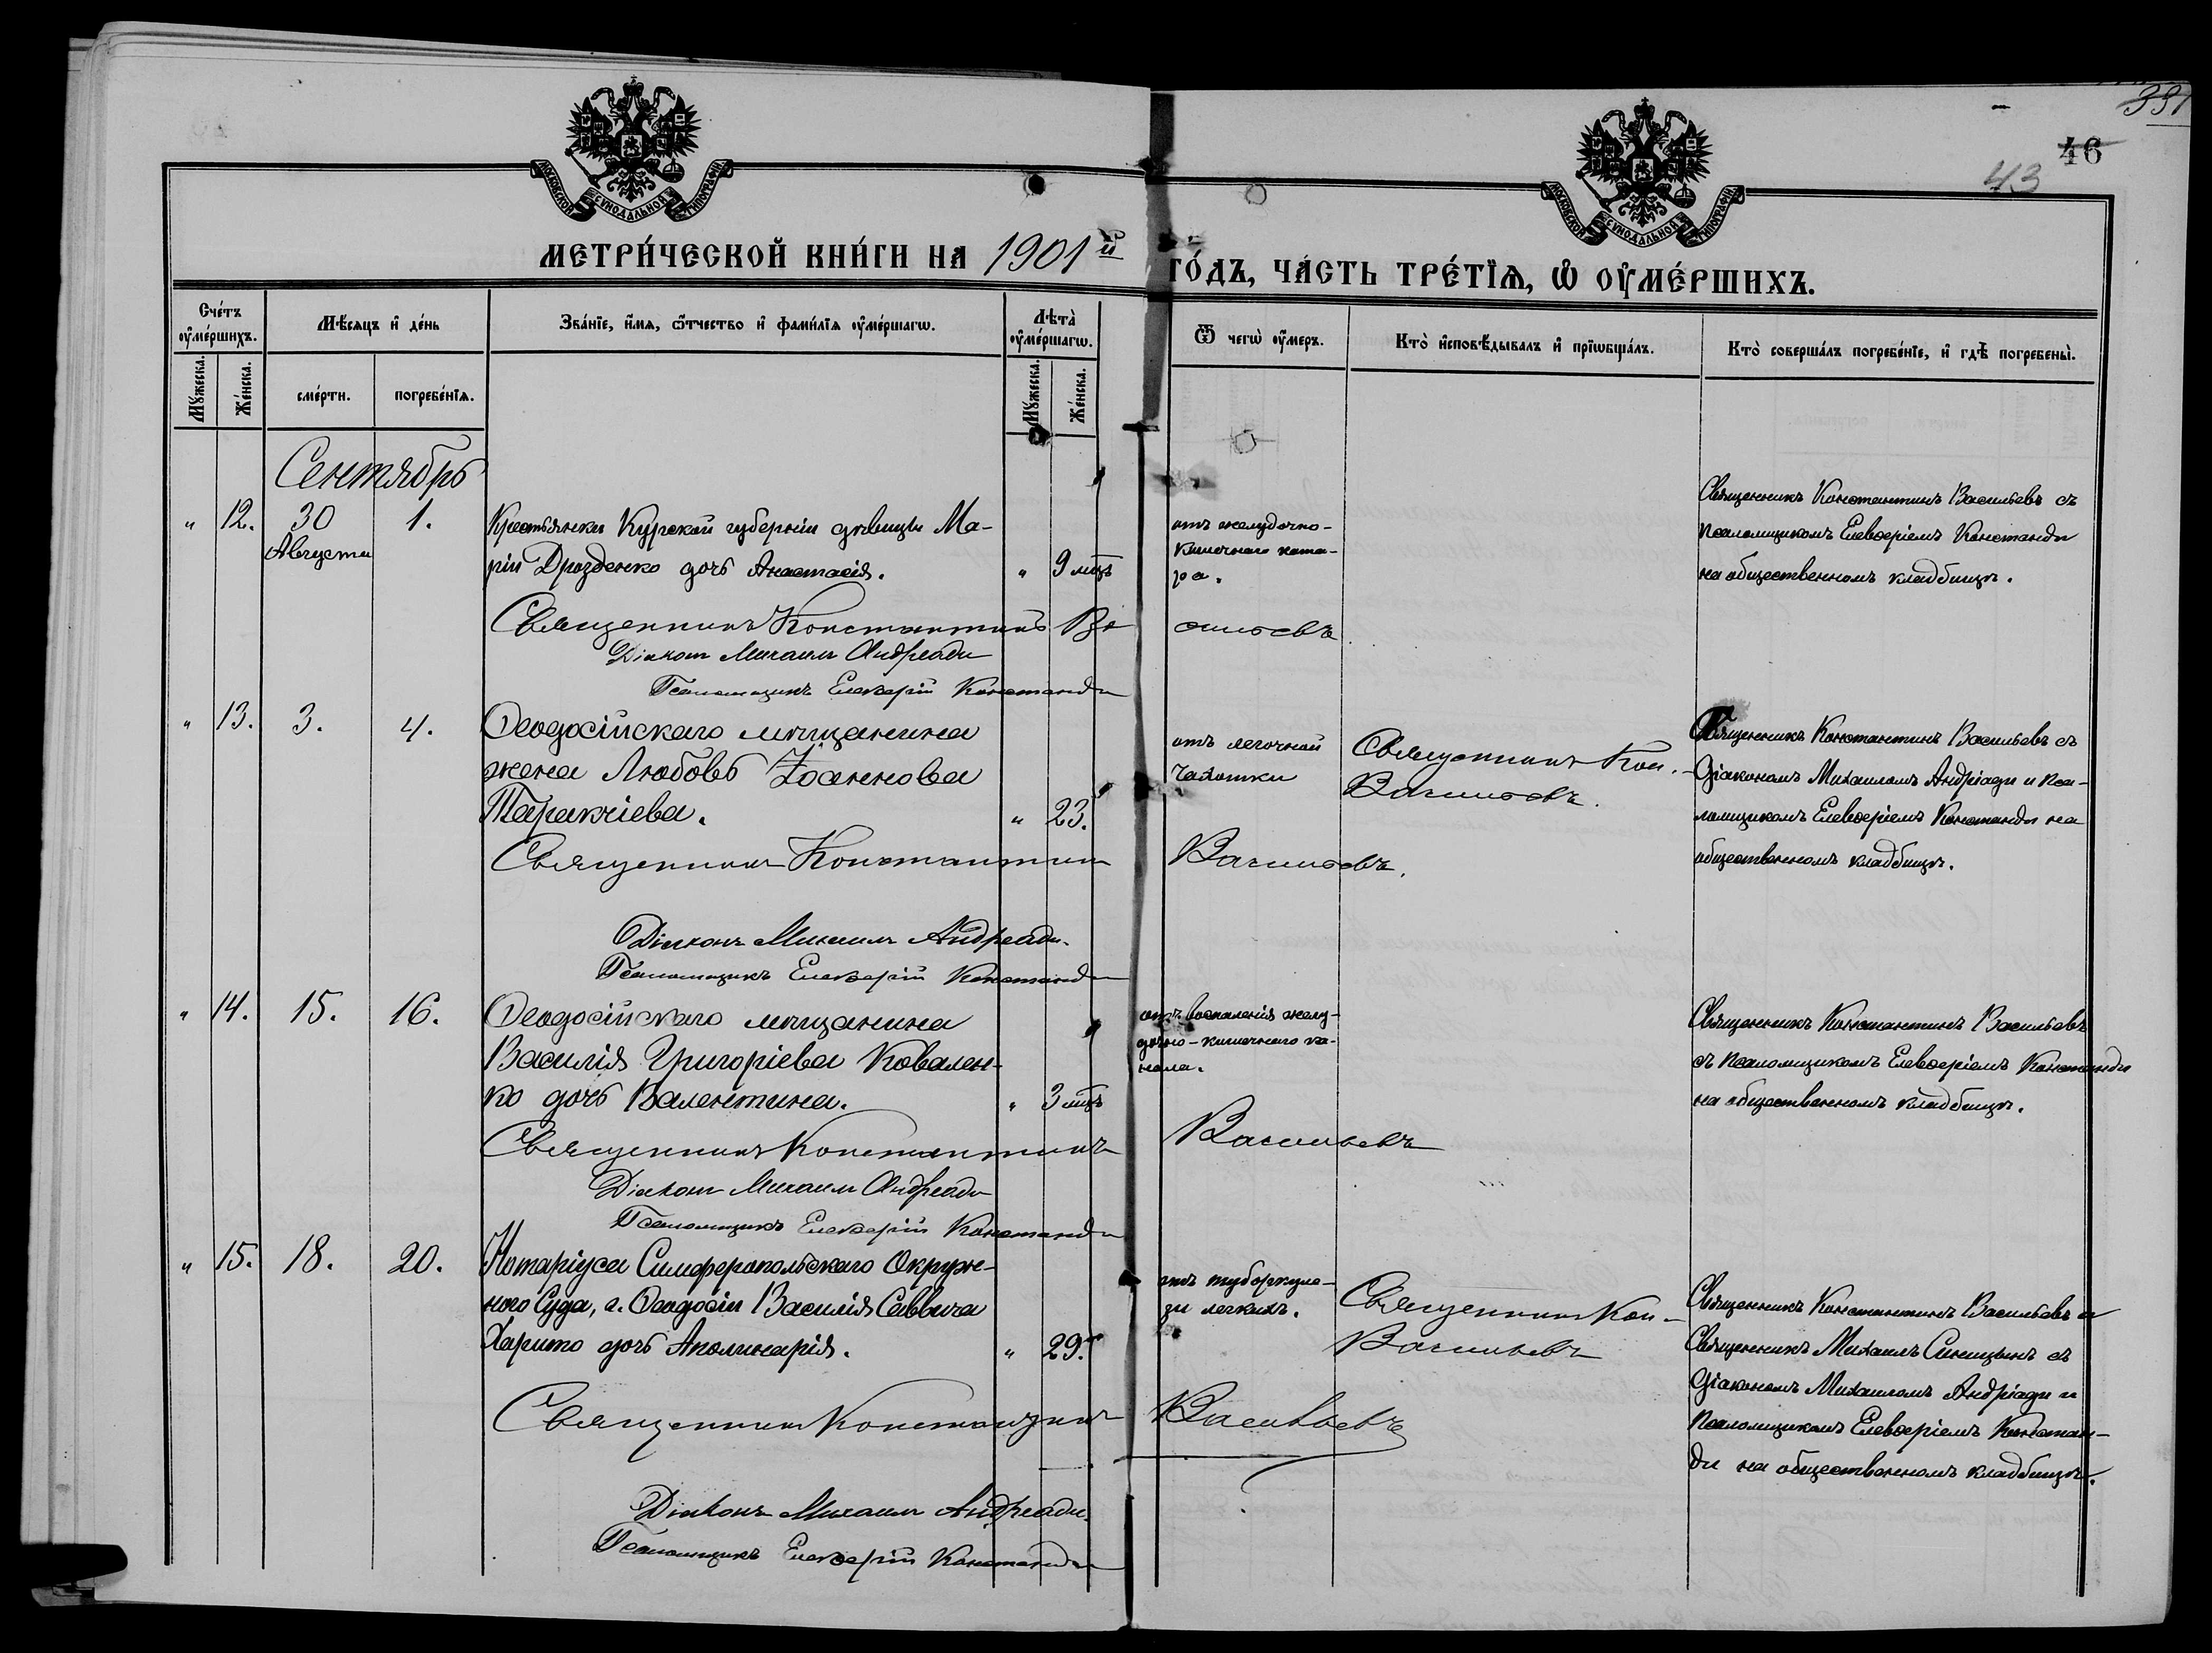 381
46
43
МОСКОВСКОЙ СѴНОДАЛЬНОЙ ТИПОГРАФІИ
МОСКОВСКОЙ СѴНОДАЛЬНОЙ ТИПОГРАФІИ
МЕТРИ́ЧЕСКОЙ КНИ́ГИ НА 1901й ГО́ДЪ, ЧА́СТЬ ТРЕ́ТІѦ, Ѡ ОУ҆МЕ́РШИХЪ.
Сче́тъ оу҆ме́ршихъ.
Мꙋ́жеска.
Же́нска.
Мѣ́сяцъ и҆ де́нь
сме́рти.
погребе́нїѧ.
Зва́нїе, и҆́мѧ, ѻ҆́тчество и҆ фами́лїѧ оу҆ме́ршагѡ.
Лѣ́та оу҆ме́ршагѡ.
Мꙋ́жеска.
Же́нска.
Ѿ чегѡ̀ оу҆́меръ.
Кто̀ и҆сповѣ́дывалъ и҆ прїѡбща́лъ.
Кто̀ соверша́лъ погребе́нїе, и҆ гдѣ̀ погребены̀.
Сентябрь
" 12. 30 Августа 1.
Крестьянки Курской губерніи дѣвицы Ма-
ріи Дрозденко дочь Анастасія. " 9 мцъ
отъ желудочно-
кишечнаго ката-
ра.
Священникъ Константинъ Васильевъ съ
псаломщикомъ Елевѳеріемъ Констанди
на общественномъ кладбищѣ.
Священникъ Константинъ Васильевъ
Діаконъ Михаилъ Андреади
Псаломщикъ Елевѳерій Констанди
" 13. 3. 4.
Ѳеодосійскаго мѣщанина
жена Любовь Іоаннова
Таракчіева. " 23.
отъ легочной
чахотки
Священникъ Кон.
Васильевъ.
Священникъ Константинъ Васильевъ съ
Діакономъ Михаиломъ Андріади и Пса-
ломщикомъ Елевѳеріемъ Констанди на
общественномъ кладбищѣ.
Священникъ Константинъ Васильевъ.
Діаконъ Михаилъ Андреади.
Псаломщикъ Елевѳерій Констанди
" 14. 15. 16.
Ѳеодосійскаго мѣщанина
Василія Григоріева Ковален-
ко дочь Валентина. " 3 мцъ
отъ воспаленія желу-
дочно-кишечнаго ка-
нала.
Священникъ Константинъ Васильевъ
съ псаломщикомъ Елевѳеріемъ Констанди
на общественномъ кладбищѣ.
Священникъ Константинъ Васильевъ
Діаконъ Михаилъ Андреади
Псаломщикъ Елевѳерій Констанди
" 15. 18. 20.
Нотаріуса Симферопольскаго Окруж-
ного Суда, г. Ѳеодосіи Василія Саввича
Харито дочь Аполинарія. " 29.
отъ туберкуле-
за легкихъ.
Священникъ Кон-
Васильевъ
Священникъ Константинъ Васильевъ и
Священникъ Михаилъ Синицынъ съ
Діакономъ Михаиломъ Андріади и
Псаломщикомъ Елевѳеріемъ Констан-
ди на общественномъ кладбищѣ.
Священникъ Константинъ Васильевъ
Діаконъ Михаилъ Андреади.
Псаломщикъ Елевѳерій Констанди